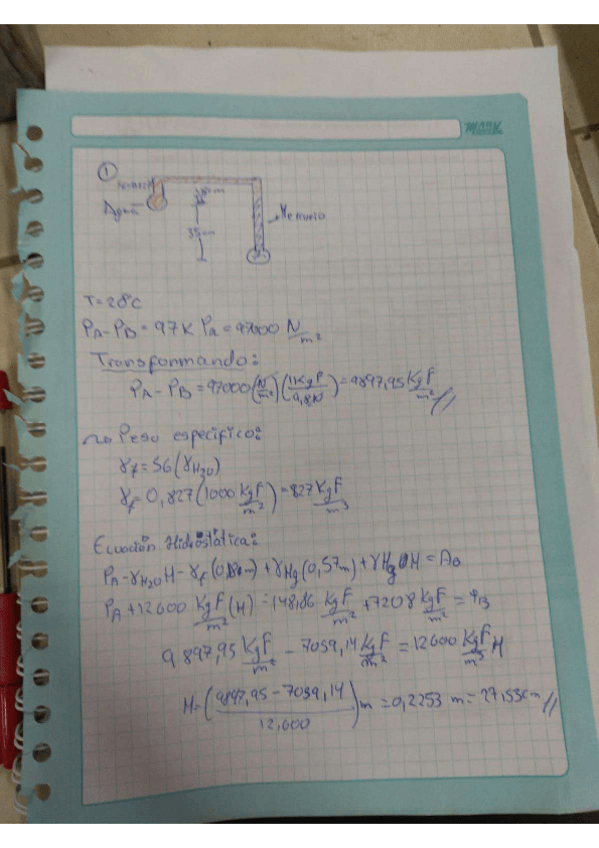 ①
Agua
35cm
Mercurio
T=28°C
PA-PB = 97K Pa = 97000 N/m²
Transformando:
PA-PB = 97000(N/m²)(1Kgf/9,8N) = 9897,95 Kgf/m² //
Peso específico:
γf = S6(γH2O)
γf = 0,827(1000 Kgf/m²) = 827 Kgf/m³
Ecuación Hidrostática:
PA-γH2O H-γf(0,18m)+γHg(0,57m)+γHg H = AB
PA+12600 Kgf/m² (H) - 148,86 Kgf/m² +7208 Kgf/m² = PB
9897,95 Kgf/m² - 7059,14 Kgf/m² = 12600 Kgf/m³ H
H = (9897,95-7059,14 / 12,600)m = 0,2253 m = 27,53cm //